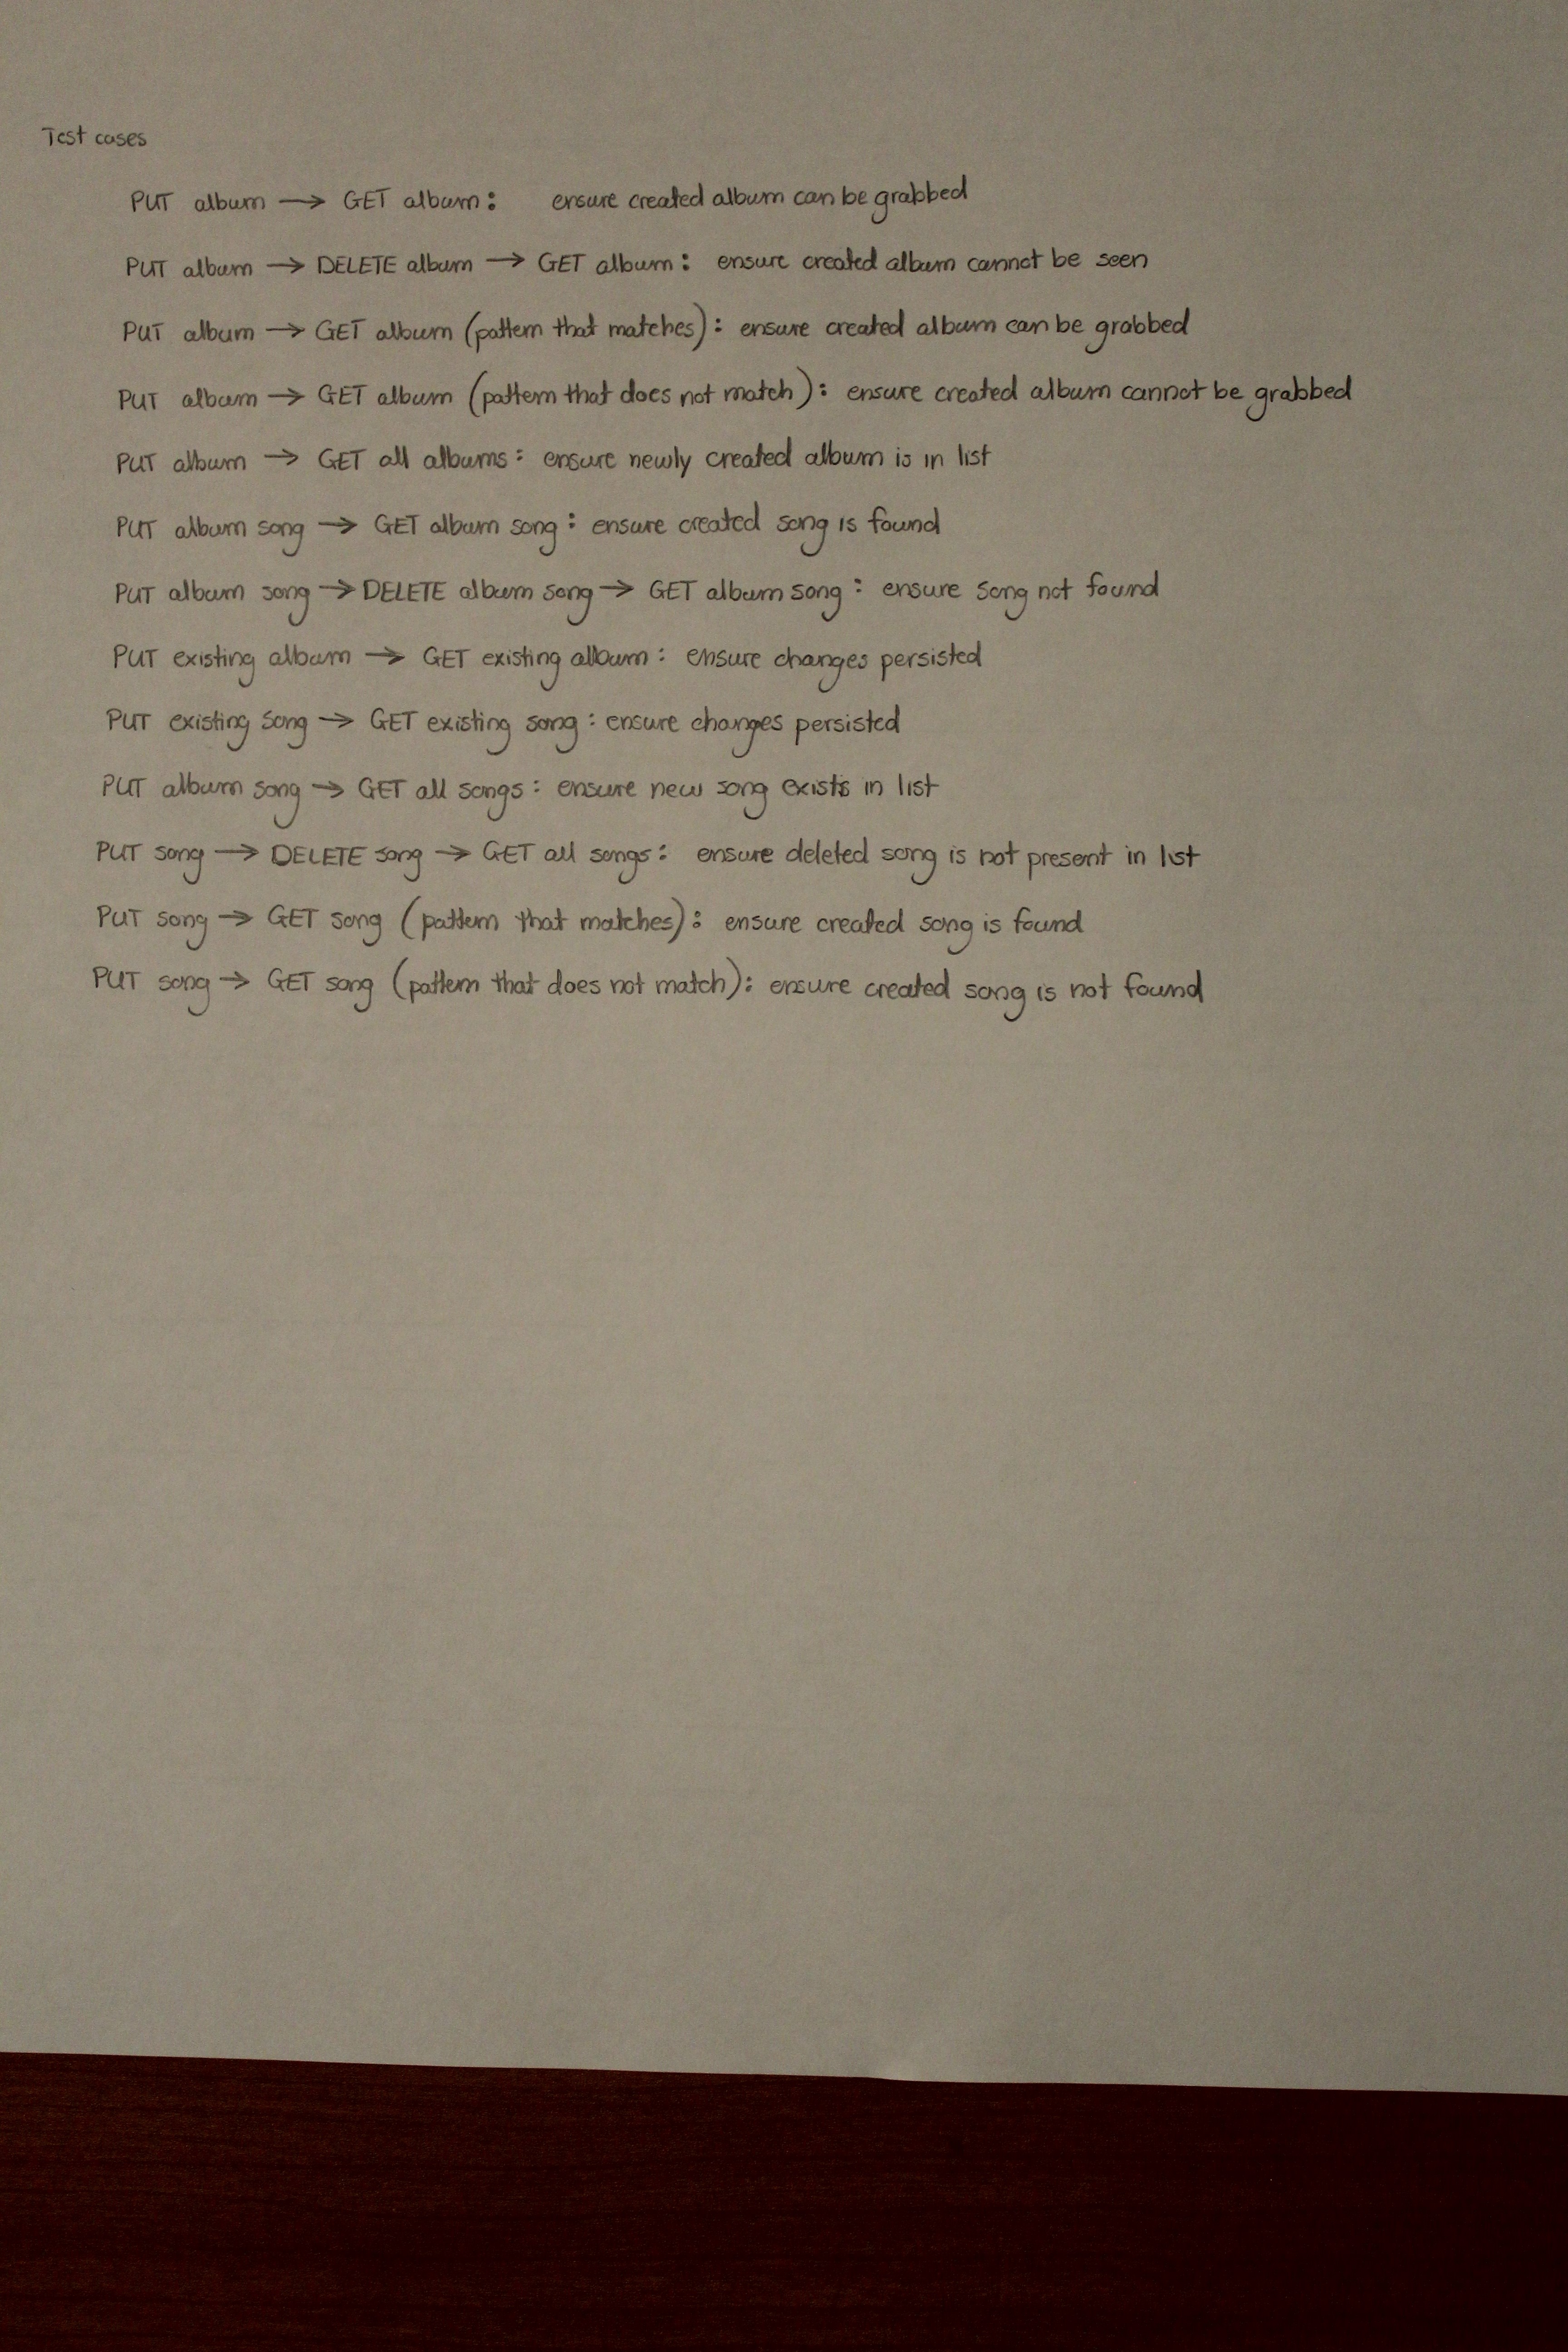 Test cases
PUT album → GET album: ensure created album can be grabbed
PUT album → DELETE album → GET album: ensure created album cannot be seen
PUT album → GET album (pattern that matches): ensure created album can be grabbed
PUT album → GET album (pattern that does not match): ensure created album cannot be grabbed
PUT album → GET all albums: ensure newly created album is in list
PUT album song → GET album song: ensure created song is found
PUT album song → DELETE album song → GET album song: ensure song not found
PUT existing album → GET existing album: ensure changes persisted
PUT existing song → GET existing song: ensure changes persisted
PUT album song → GET all songs: ensure new song exists in list
PUT song → DELETE song → GET all songs: ensure deleted song is not present in list
PUT song → GET song (pattern that matches): ensure created song is found
PUT song → GET song (pattern that does not match): ensure created song is not found